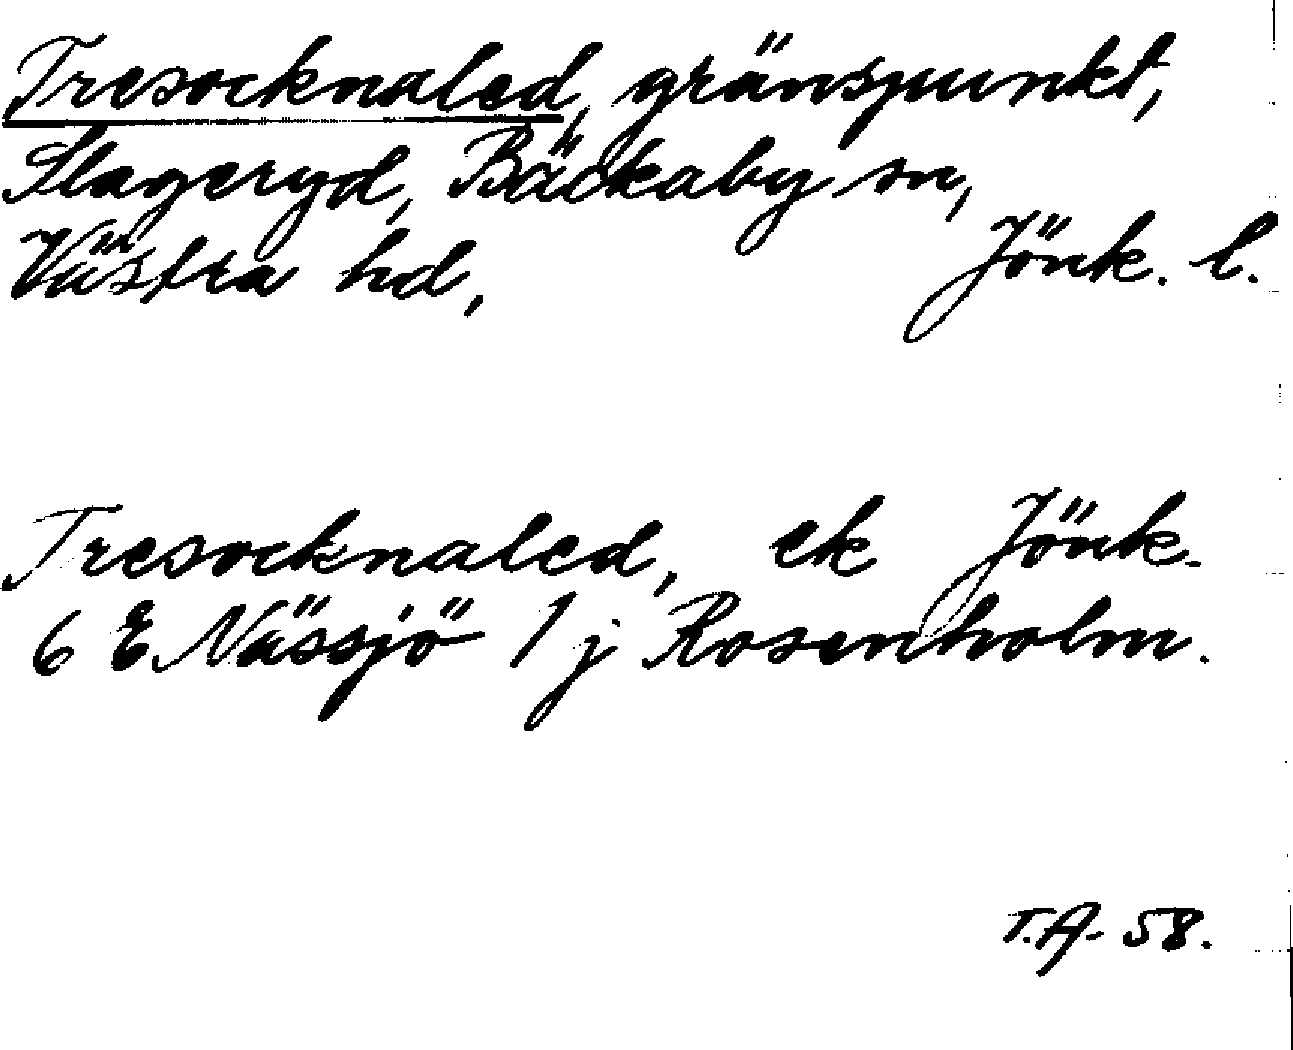 Tresocknaled, gränspunkt,
Slageryd, Bäckaby sn,
Västra hd, Jönk. l.
Tresocknaled, ek Jönk.
6 E Nässjö 1 j Rosenholm.
T.A. 58.